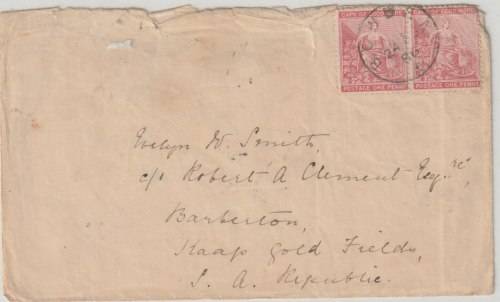 CAPE OF GOOD HOPE CAPE OF GOOD HOPE
POSTAGE ONE PENNY POSTAGE ONE PENNY
Evelyn W. Smith,
c/o Robert A Clement Esq.re
Barberton,
Kaap Gold Fields,
S. A. Republic.